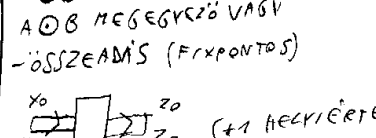 A ⊙ B MEGEGYEZŐ VAGY
-ÖSSZEADÁS (FIXPONTOS)
X0 Z0
(+1 HELYIÉRTÉ